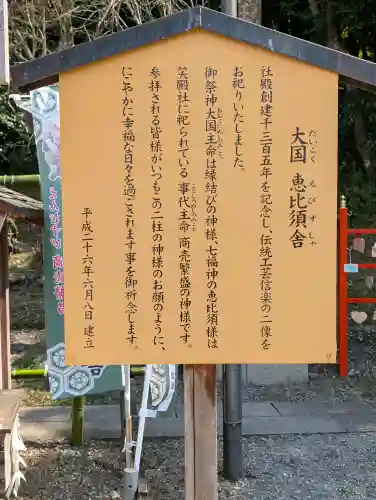 大国 恵比須舎
たいこく えびすしゃ
社殿創建千三百五年を記念し、伝統工芸信楽の二像を
お祀りいたしました。
御祭神大国主命は縁結びの神様、七福神の恵比須様は
笑殿社に祀られている 事代主命 商売繁盛の神様です。
参拝される皆様がいつもこの二柱の神様のお顔のように、
にこやかに幸福な日々を過ごされます事を御祈念します。
平成二十六年六月八日 建立